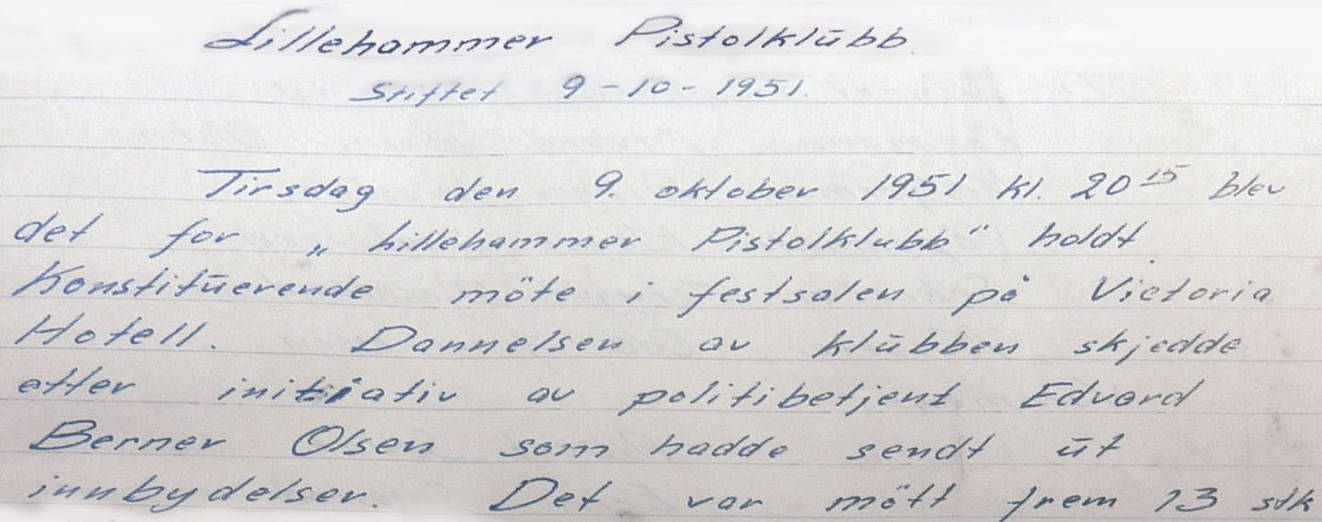 Lillehammer Pistolklūbb.
Stiftet 9-10-1951.
Tirsdag den 9. oktober 1951 kl. 20 15 blev
det for „Lillehammer Pistolklubb" holdt
Konstitūerende möte i festsalen på Victoria
Hotell. Dannelsen av klūbben skjedde
etter initiativ av politibetjent Edvard
Berner Olsen som hadde sendt ūt
innbydelser. Det var mött frem 13 stk